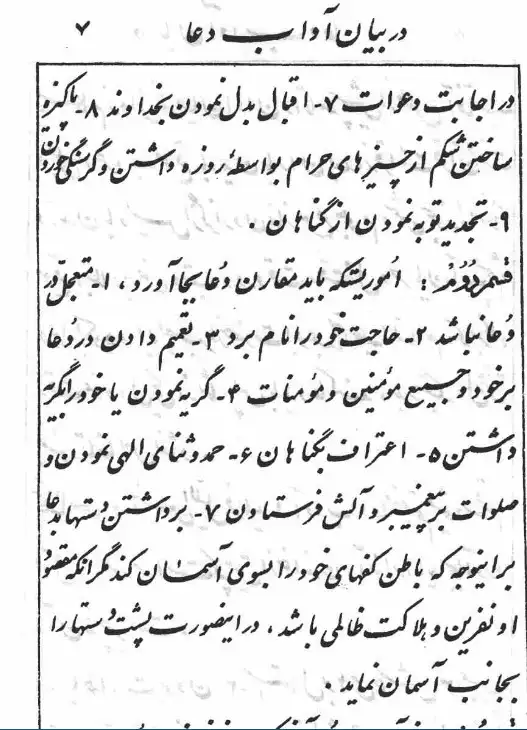 در بیان آداب دعا ۷
در اجابت دعوات ۷- اقبال بدل نمودن بخداوند ۸- پاکیزه
ساختن شکم از چیزهای حرام بواسطهٔ روزه داشتن و گرسنگی خوردن
۹- تجدید توبه نمودن از گناهان .
قسم دوم : اُموریستکه باید مقارن دُعا بجا آورد ، ۱- متعجل در
دُعا نباشد ۲- حاجت خود را نام برد ۳- تعمیم دادن در دُعا
بر خود و جمیع مؤمنین و مؤمنات ۴- گریه نمودن یا خود را بگریه
داشتن ۵- اعتراف بگناهان ۶- حمد و ثنای الهی نمودن و
صلوات بر پیغمبر و آلش فرستادن ۷- برداشتن دستها بدعا
براینوجه که باطن کفهای خود را بسوی آسمان کند مگر انکه مقصود
او نفرین و هلاکت ظالمی باشد ، در اینصورت پشت دستها را
بجانب آسمان نماید .